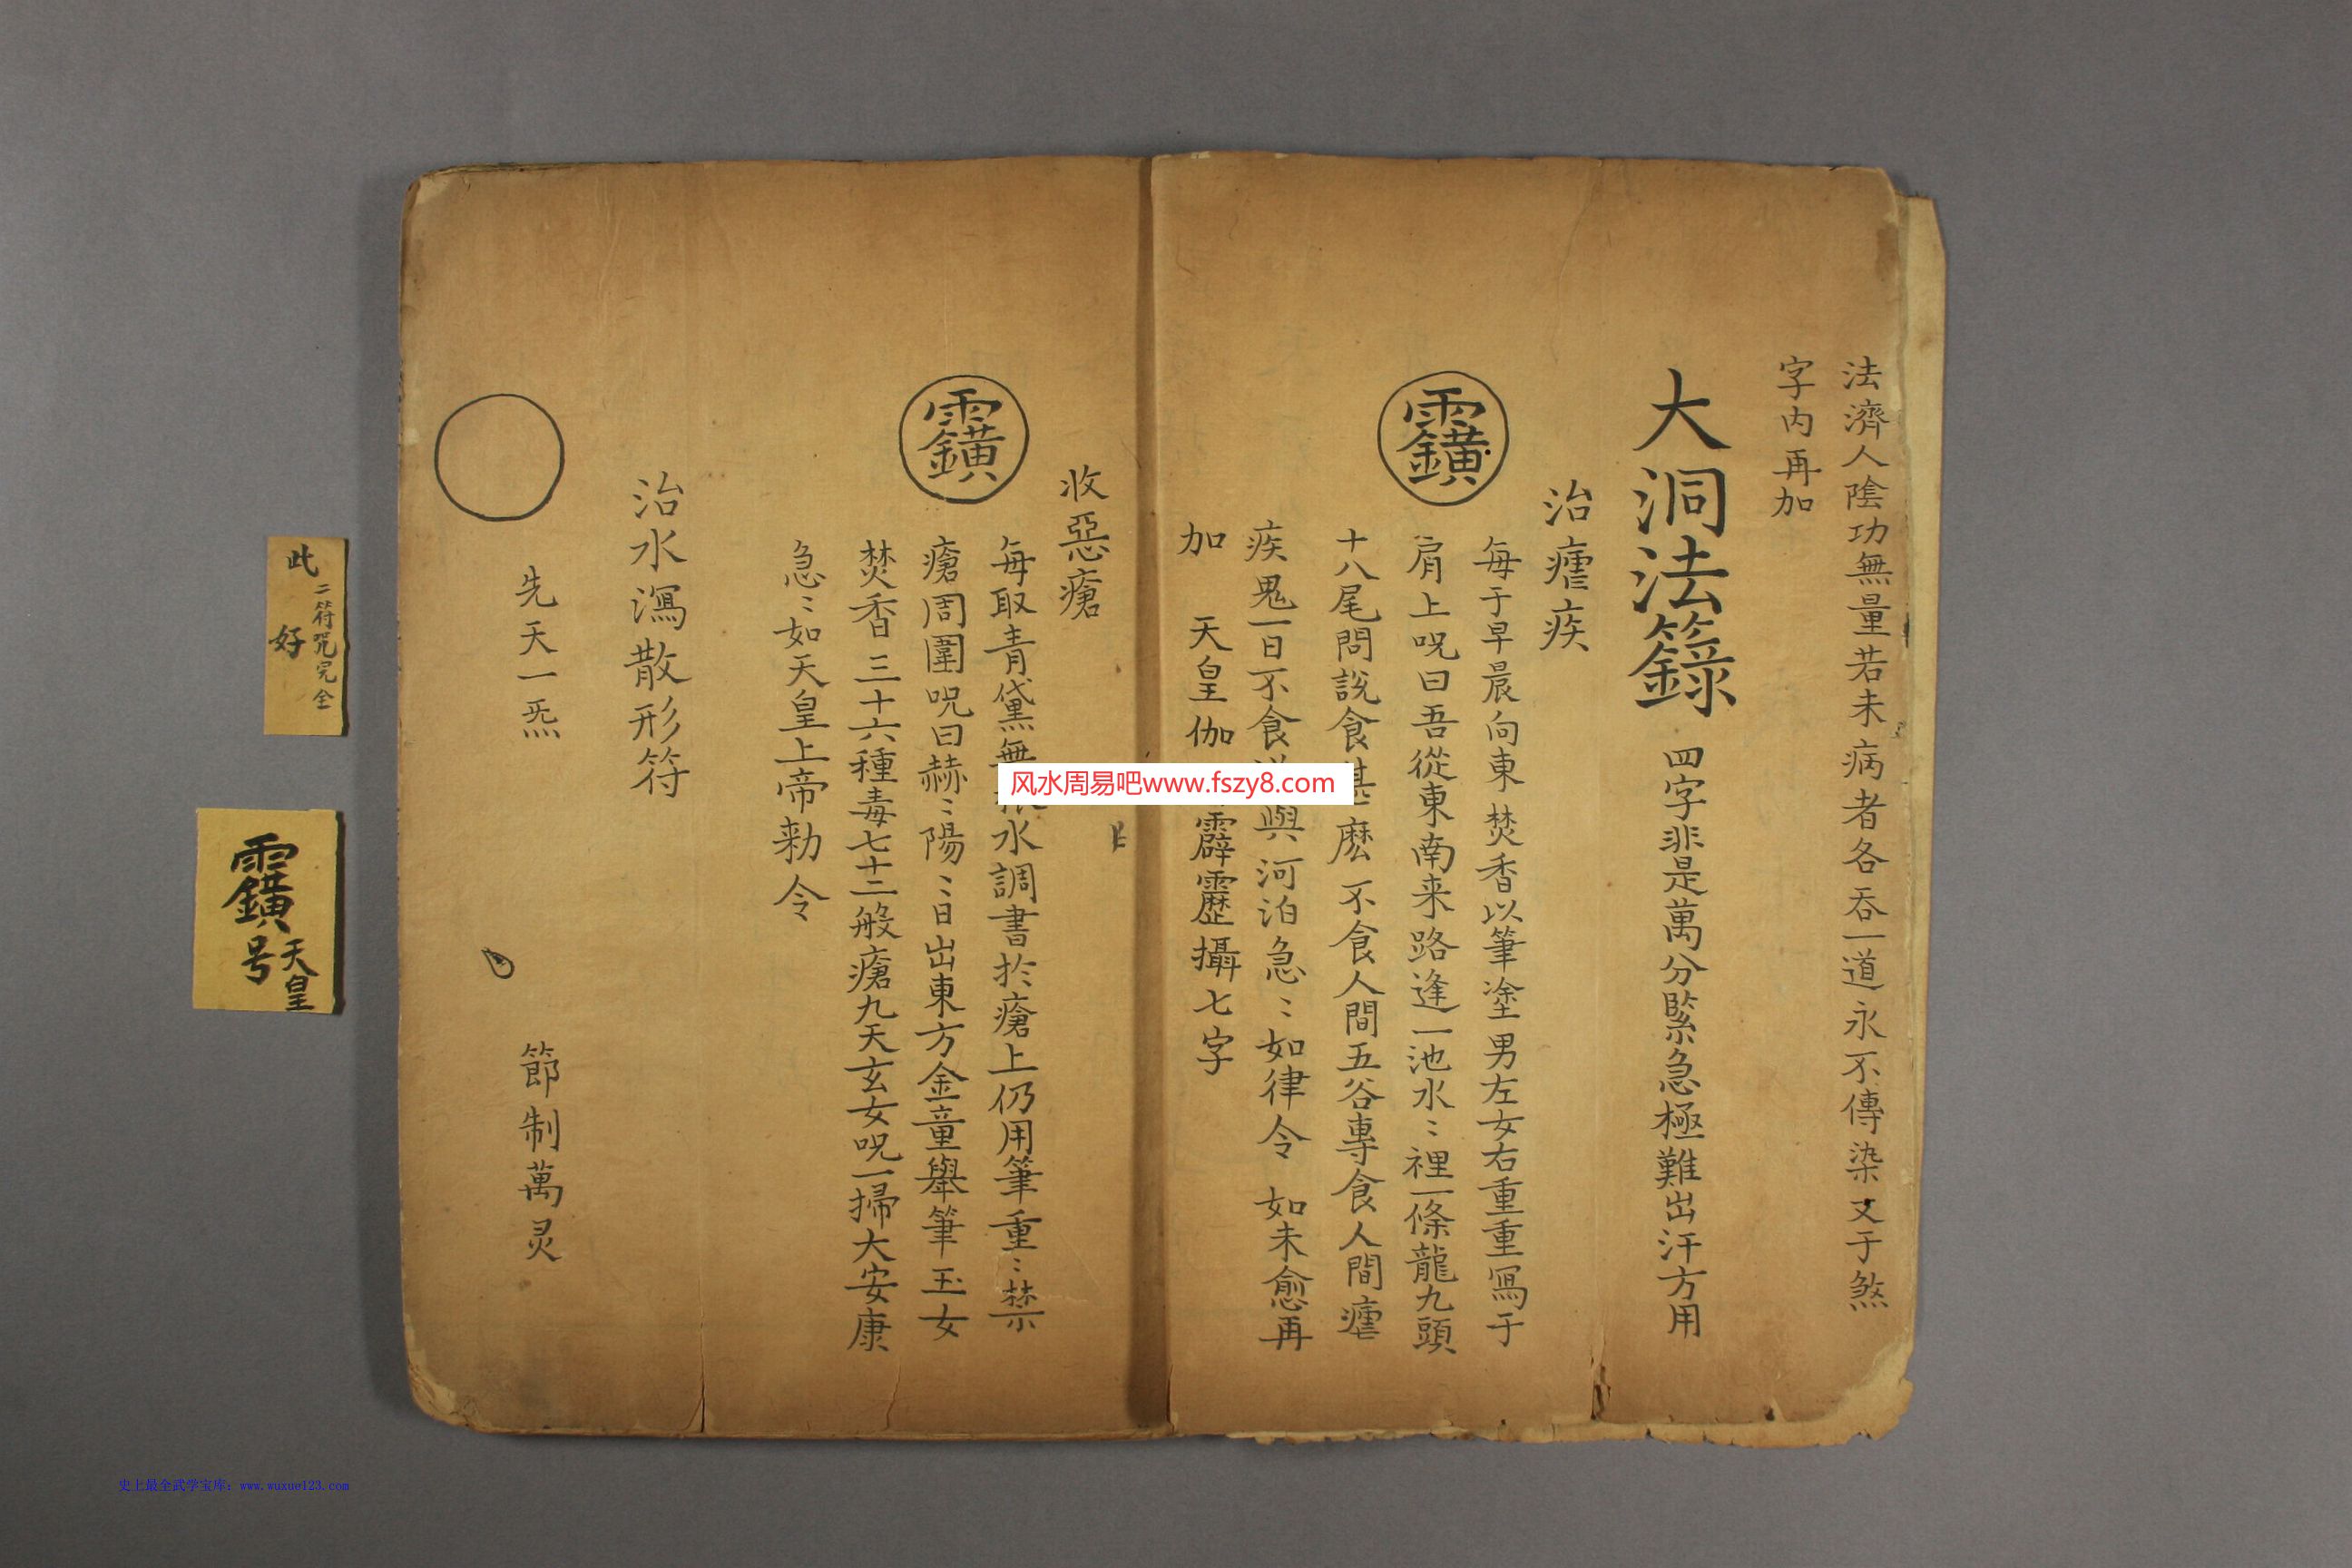 法濟人陰功無量若未病者各吞一道永不傳染又于煞
字內再加
大洞法籙 四字非是萬分緊急極難出汗方用
治瘧疾
每于早晨向東焚香以筆塗男左女右重重寫于
肩上咒曰吾從東南来路逢一池水〻裡一條龍九頭
十八尾問說食甚麽不食人間五谷專食人間瘧
疾鬼一日不食 與河泊急〻如律令 如未愈再
加 天皇伽 霹靂攝七字
收惡瘡
每取青黛無 水調書於瘡上仍用筆重〻禁
瘡周圍咒曰赫〻陽〻日出東方金童舉筆玉女
焚香三十六種毒七十二般瘡九天玄女咒一掃大安康
急〻如天皇上帝勅令
治水瀉散形符
先天一炁 節制萬灵
此二符咒完全
好
天皇
号
风水周易吧www.fszy8.com
史上最全武学宝库：www.wuxue123.com